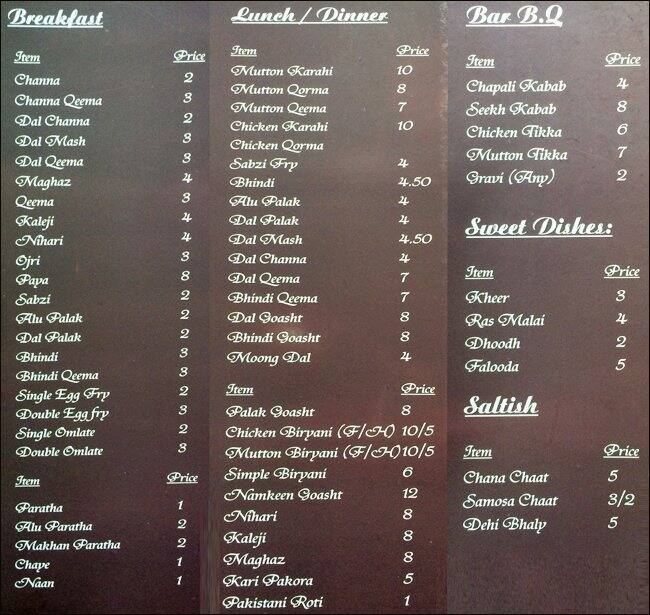 Breakfast
Item Price
Channa 2
Channa Qeema 3
Dal Channa 2
Dal Mash 3
Dal Qeema 3
Maghaz 4
Qeema 3
Kaleji 4
Nihari 4
Ojri 3
Papa 8
Sabzi 2
Alu Palak 2
Dal Palak 2
Bhindi 3
Bhindi Qeema 3
Single Egg Fry 2
Double Egg fry 3
Single Omlate 2
Double Omlate 3
Item Price
Paratha 1
Alu Paratha 2
Makhan Paratha 2
Chaye 1
Naan 1
Lunch / Dinner
Item Price
Mutton Karahi 10
Mutton Qorma 8
Mutton Qeema 7
Chicken Karahi 10
Chicken Qorma
Sabzi Fry 4
Bhindi 4.50
Alu Palak 4
Dal Palak 4
Dal Mash 4.50
Dal Channa 4
Dal Qeema 7
Bhindi Qeema 7
Dal Goasht 8
Bhindi Goasht 8
Moong Dal 4
Item Price
Palak Goasht 8
Chicken Biryani (F/H) 10/5
Mutton Biryani (F/H) 10/5
Simple Biryani 6
Namkeen Goasht 12
Nihari 8
Kaleji 8
Maghaz 8
Kari Pakora 5
Pakistani Roti 1
Bar B.Q
Item Price
Chapali Kabab 4
Seekh Kabab 8
Chicken Tikka 6
Mutton Tikka 7
Gravi (Any) 2
Sweet Dishes:
Item Price
Kheer 3
Ras Malai 4
Dhoodh 2
Falooda 5
Saltish
Item Price
Chana Chaat 5
Samosa Chaat 3/2
Dehi Bhaly 5